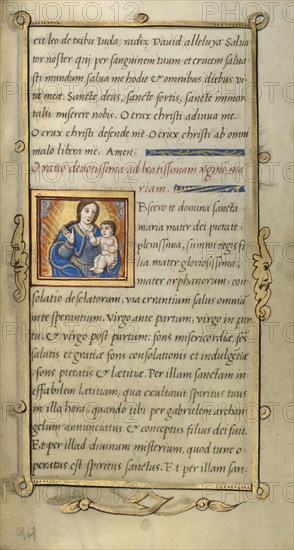 cit leo de tribu Iuda, radix Dauid alleluya Salua
tor noster qui per sanguinem tuum et crucem salua
sti mundum salua me hodie et omnibus diebus vi
tae meae. Sancte deus, sancte fortis, sancte immor
talis miserere nobis. O crux christi adiuua me.
O crux christi defende me. O crux christi ab omni
malo libera me. Amen.
Oratio deuotissima ad beatissimam virginem ma
riam.
Bsecro te domina sancta
maria mater dei pietate
plenissima, summi regis fi
lia mater gloriosissima,
mater orphanorum: con
solatio desolatorum, via errantium salus omniũ
in te sperantium. Virgo ante partum, virgo in par
tu, & virgo post partum: fons misericordiae, fõs
salutis et gratiae fons consolationis et indulgẽtiæ
fons pietatis & lætitiæ. Per illam sanctam in
effabilem laetitiam, qua exultauit spiritus tuus
in illa hora, quando tibi per gabrielem archan
gelum annunciatus & conceptus filius dei fuit.
Et per illud diuinum misterium, quod tunc o
peratus est spiritus sanctus. Et per illam san:
94